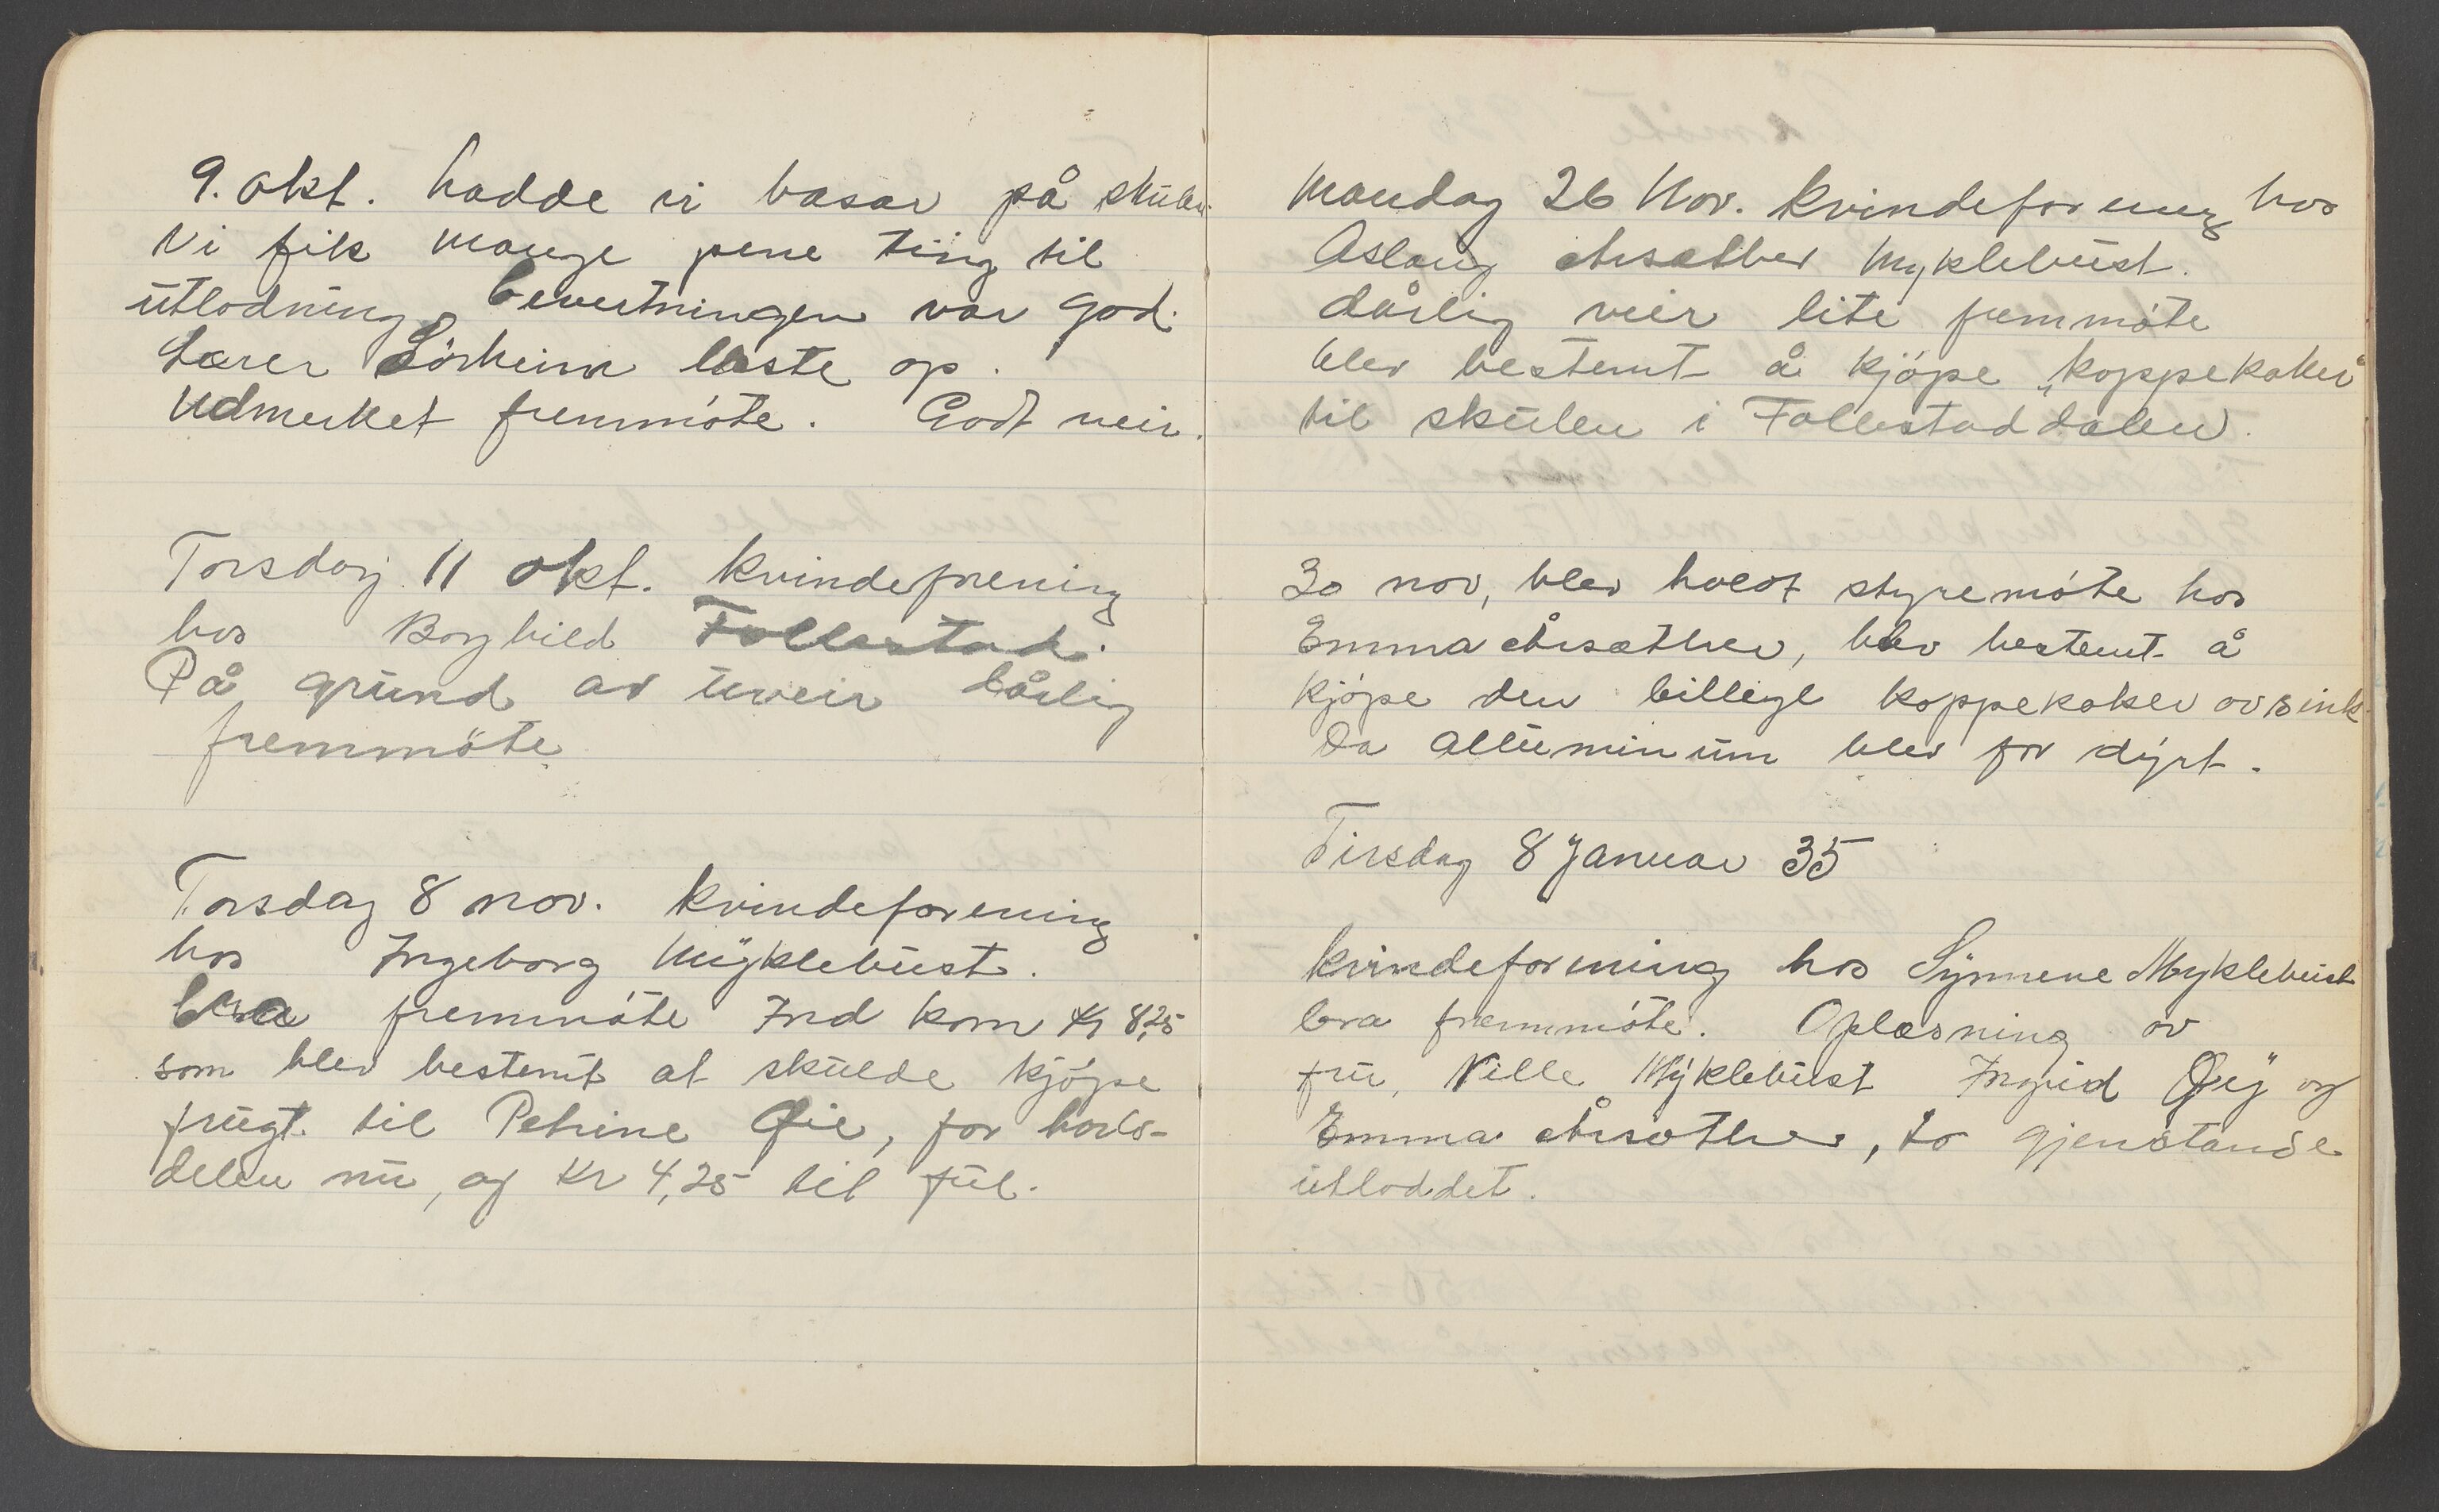 9. okt. hadde vi basar på skulen.
Vi fik mange pene ting til
utlodning, bevertningen var god.
Lærer Sörheim læste op.
Udmerket fremmöte. Godt veir.
Torsdag 11 okt. kvindeforening
hos Borghild Follestad.
På grund av uveir dårlig
fremmöte.
Torsdag 8 nov. kvindeforening
hos Ingeborg Myklebust.
bra fremmöte Ind kom Kr 8,25
som blev bestemt at skulde kjöpe
frugt til Petrine Øie, for
delen nu, og Kr 4,25 til jul.
Mandag 26 Nov. kvindeforening hos
Aslaug Årsæther Myklebust.
dårlig veir lite fremmöte
blev bestemt å kjöpe „koppekoker"
til skulen i Follestaddalen.
30 nov, blev holdt styremöte hos
Emma Årsæther, blev bestemt å
kjöpe den billige koppekoker av sink
Da alluminium blev for dyrt.
Tirsdag 8 Januar 35
kvindeforening hos Synnene Myklebust
bra fremmöte. Oplæsning av
fru, Ville Myklebust Ingrid Øy og
Emma Årsæther, to gjenstande
utloddet.